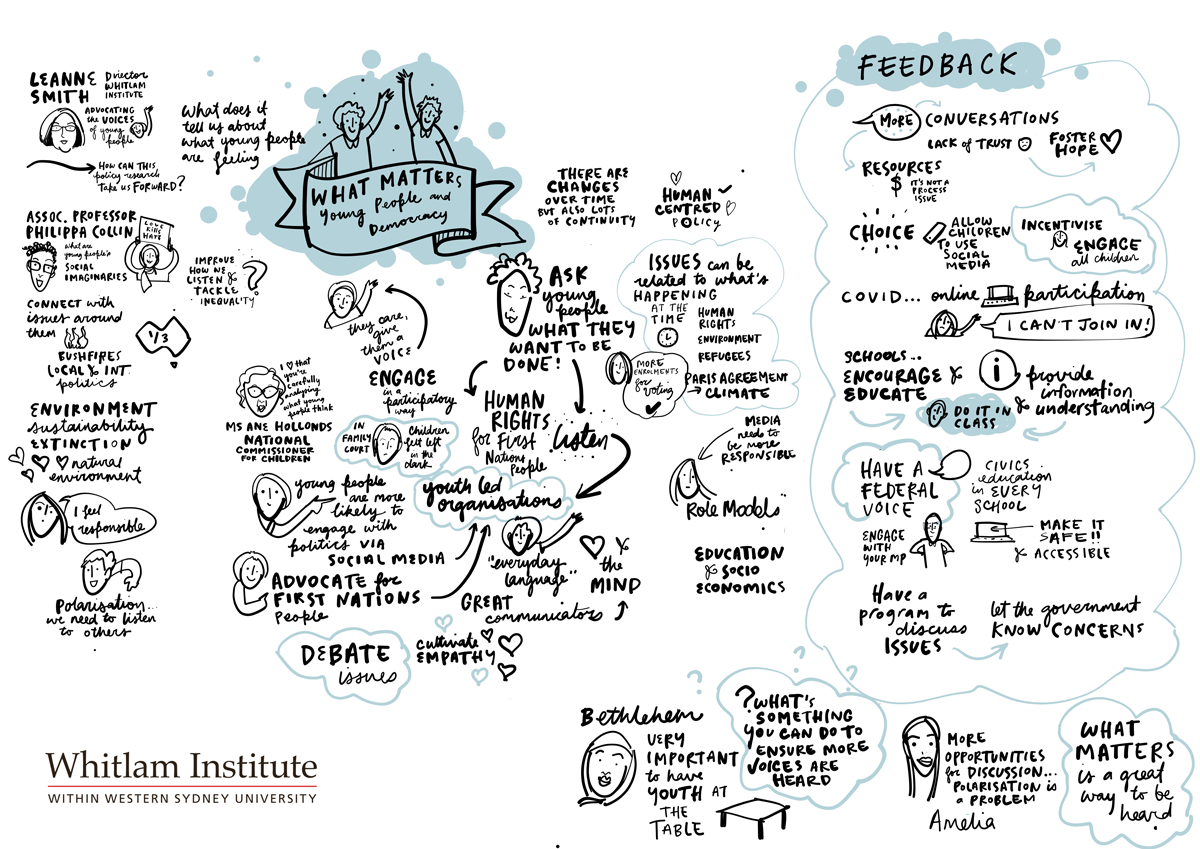 LEANNE
SMITH
Director
WHITLAM
INSTITUTE
ADVOCATING
the VOICES
of young
people
HOW CAN THIS
policy research
take us FORWARD?
What does it
tell us about
what young people
are feeling
WHAT MATTERS
Young People and
Democracy
ASSOC. PROFESSOR
PHILIPPA COLLIN
what are
young people's
SOCIAL
IMAGINARIES
LOVE
KILLS
HATE
IMPROVE
HOW WE
LISTEN &
TACKLE
INEQUALITY
?
CONNECT with
issues around
them
BUSHFIRES
LOCAL & INT.
politics
1/3
ENVIRONMENT
sustainability
EXTINCTION
natural
environment
I feel
responsible
Polarisation...
we need to listen
to others
they care,
give
them a
VOICE
I ♡ that
you're
carefully
analysing
what young
people think
MS ANE HOLLONDS
NATIONAL
COMMISSIONER
FOR CHILDREN
ENGAGE
in a
participatory
way
IN
FAMILY
COURT
Children
felt left
in the
dark
young people
are more
likely to
engage with
politics VIA
SOCIAL MEDIA
ADVOCATE for
FIRST NATIONS
People
DEBATE
issues
cultivate
EMPATHY
ASK
young
people
WHAT THEY
WANT TO BE
DONE!
HUMAN
RIGHTS
for First
Nations
People
listen
youth led
organisations
"everyday
language"
GREAT
communicators
&
the
MIND
THERE ARE
CHANGES
OVER TIME
BUT ALSO LOTS
OF CONTINUITY
HUMAN
CENTRED
POLICY
ISSUES can be
related to what's
HAPPENING
AT THE
TIME
HUMAN
RIGHTS
ENVIRONMENT
REFUGEES
PARIS AGREEMENT
CLIMATE
MORE
ENROLMENTS
for
voting
MEDIA
needs to
be more
RESPONSIBLE
Role Models
EDUCATION
& SOCIO
ECONOMICS
FEEDBACK
MORE
CONVERSATIONS
LACK OF TRUST
FOSTER
HOPE
RESOURCES
$
IT'S NOT A
PROCESS
ISSUE
CHOICE
ALLOW
CHILDREN
TO USE
SOCIAL
MEDIA
INCENTIVISE
& ENGAGE
all children
COVID... online
participation
I CAN'T JOIN IN!
SCHOOLS..
ENCOURAGE &
EDUCATE
DO IT IN
CLASS
i
provide
information
& understanding
HAVE A
FEDERAL
VOICE
CIVICS
education
in EVERY
SCHOOL
ENGAGE
WITH
YOUR MP
MAKE IT
SAFE!!
& ACCESSIBLE
Have a
program to
discuss
ISSUES
let the government
KNOW CONCERNS
Bethlehem
VERY
IMPORTANT
to have
YOUTH AT
THE
TABLE
? WHAT'S
SOMETHING
YOU CAN DO TO
ENSURE MORE
VOICES ARE
HEARD
?
?
MORE
OPPORTUNITIES
for DISCUSSION...
POLARISATION is
a PROBLEM
Amelia
WHAT
MATTERS
is a great
way to be
heard
Whitlam Institute
WITHIN WESTERN SYDNEY UNIVERSITY